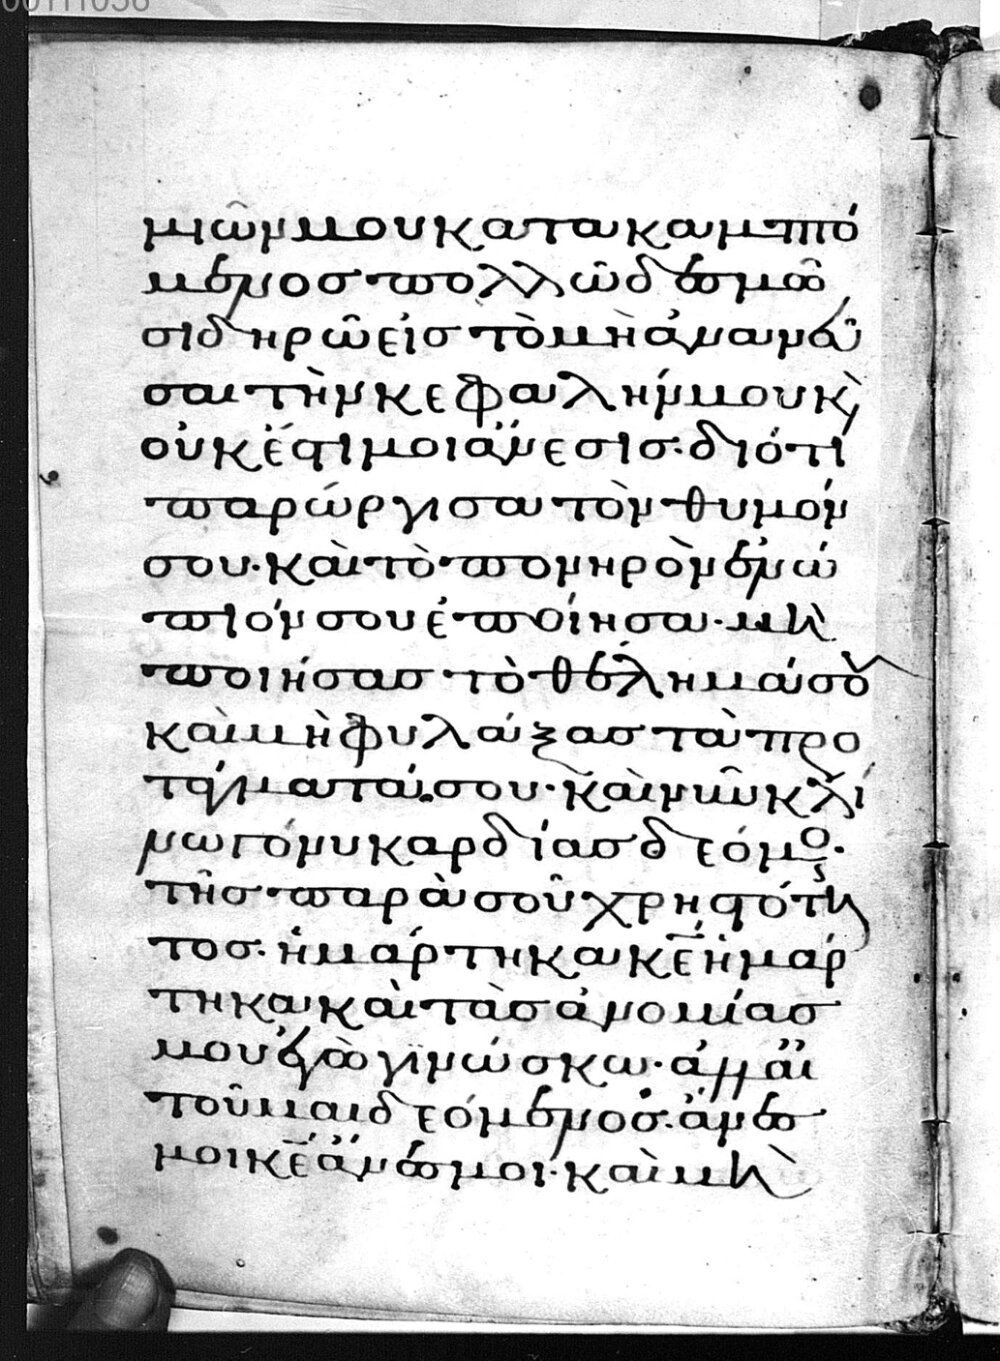 00111038
μιῶν μου κατακαμπτό
μενος πολλῶ δεσμῶ
σιδηρῶ εἰς τὸ μὴ ἀνανεῦ
σαι τὴν κεφαλήν μου κ(αὶ)
οὐκ ἔστι μοι ἄνεσις· διότι
παρώργισα τὸν θυμόν
σου· καὶ τὸ πονηρὸν ἐνώ
πιόν σου ἐποίησα· μὴ
ποιήσας τὸ θέλημά σου
καὶ μὴ φυλάξας τὰ προ
στάγματά σου· καὶ νῦν κλί
νω γόνυ καρδίας δεόμενος·
τῆς παρὰ σοῦ χρηστότη
τος· ἡμάρτηκα κε ἡμάρ
τηκα καὶ τὰς ἀνομίας
μου ἐγὼ γινώσκω· ἀλλ' αἰ
τοῦμαι δεόμενος· ἄνες
μοι κε ἄνες μοι· καὶ μὴ